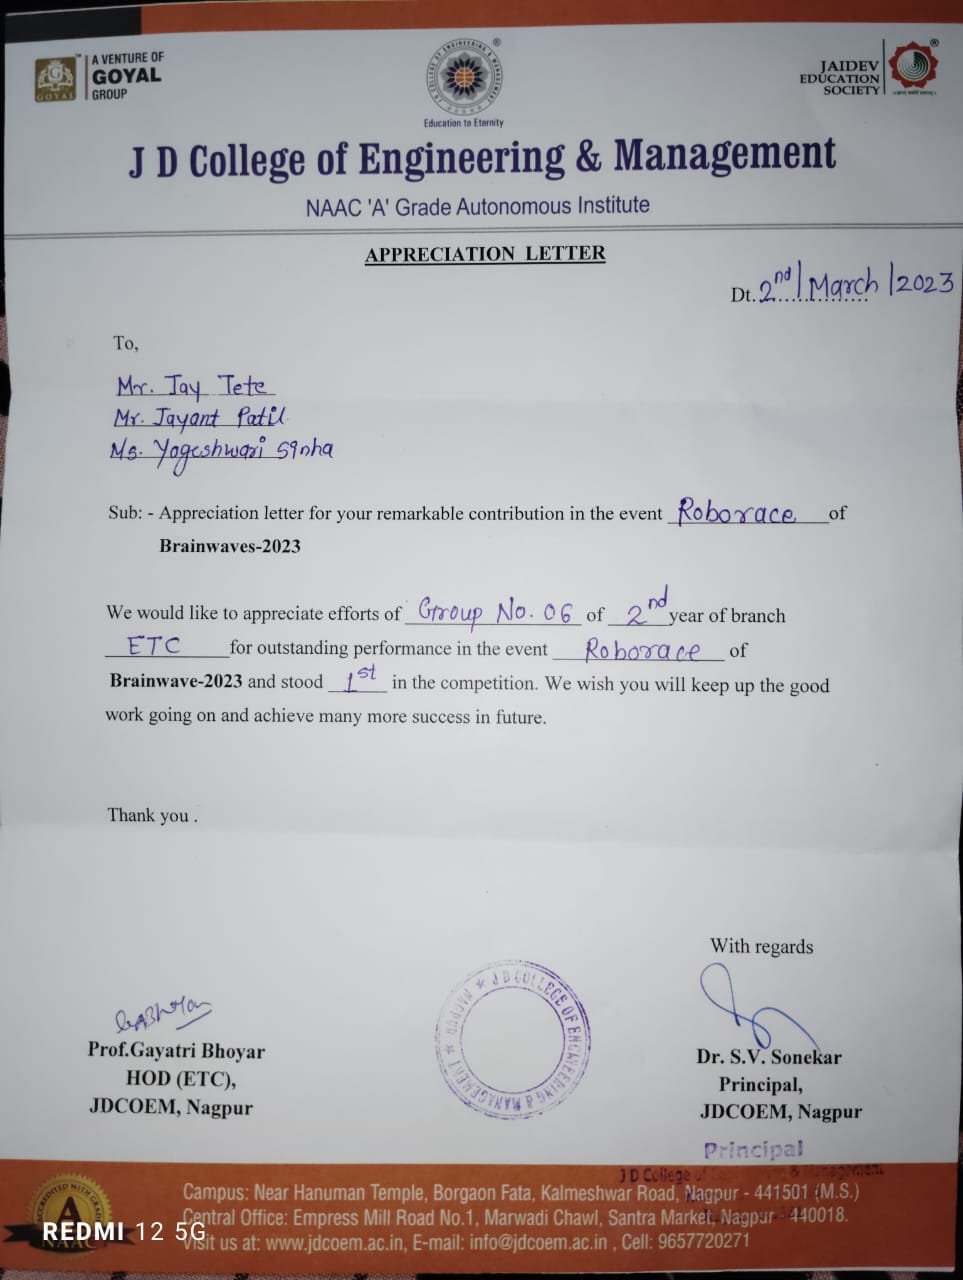 GOYAL
A VENTURE OF
GOYAL
GROUP
J D COLLEGE OF ENGINEERING & MANAGEMENT
Education to Eternity
JAIDEV
EDUCATION
SOCIETY
J D College of Engineering & Management
NAAC 'A' Grade Autonomous Institute
APPRECIATION LETTER
Dt. 2nd/March/2023
To,
Mr. Jay Tete
Mr. Jayant Patil
Ms. Yogeshwari Sinha
Sub: - Appreciation letter for your remarkable contribution in the event Roborace of
Brainwaves-2023
We would like to appreciate efforts of Group No. 06 of 2nd year of branch
ETC for outstanding performance in the event Roborace of
Brainwave-2023 and stood 1st in the competition. We wish you will keep up the good
work going on and achieve many more success in future.
Thank you .
With regards
GABhoyar
Prof.Gayatri Bhoyar
HOD (ETC),
JDCOEM, Nagpur
J D COLLEGE OF ENGINEERING & MANAGEMENT ★ NAGPUR ★
Dr. S.V. Sonekar
Principal,
JDCOEM, Nagpur
Principal
J D College of & Management
ACCREDITED WITH GRADE
A
NAAC
Campus: Near Hanuman Temple, Borgaon Fata, Kalmeshwar Road, Nagpur - 441501 (M.S.)
Central Office: Empress Mill Road No.1, Marwadi Chawl, Santra Market, Nagpur - 440018.
Visit us at: www.jdcoem.ac.in, E-mail: info@jdcoem.ac.in , Cell: 9657720271
REDMI 12 5G